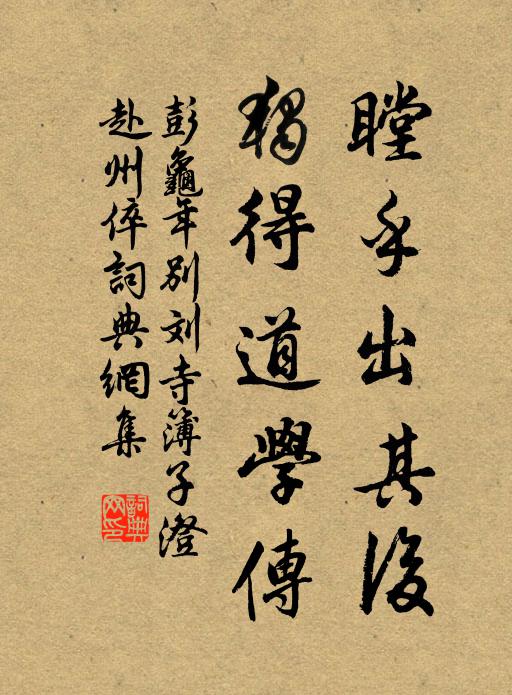 瞠乎出其後
獨得道學傳
彭龜年別刘寺簿子澄
赴州倅詞典網集
詞典網印